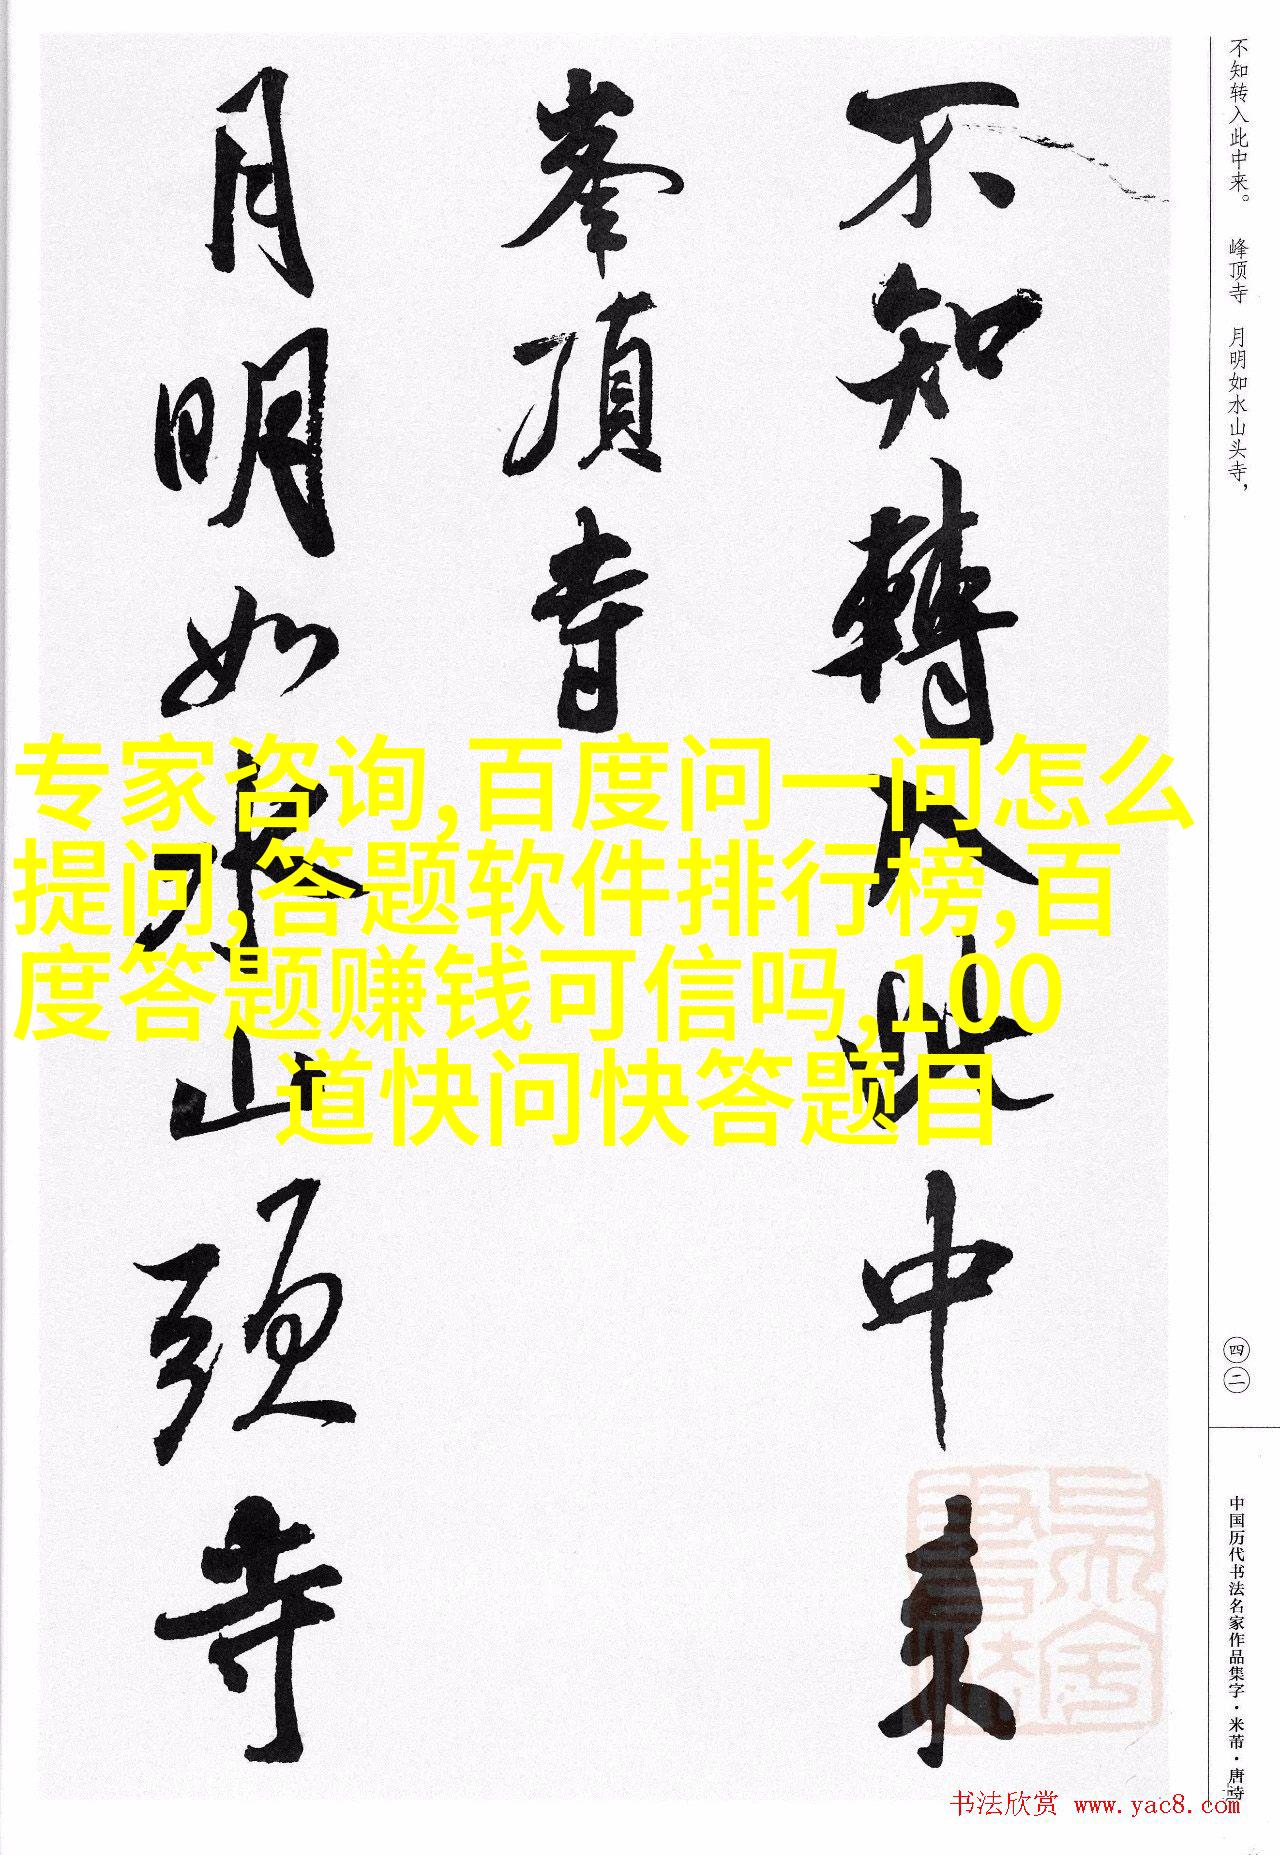 不知转入此中来。 峰顶寺 月明如水山头寺，
不知轉入此中來
峯頂寺
月明如水山頭寺
专家咨询,百度问一问怎么
提问,答题软件排行榜,百
度答题赚钱可信吗,100
道快问快答题目
四二
中国历代书法名家作品集字·米芾·唐诗
书法欣赏 www.yac8.com